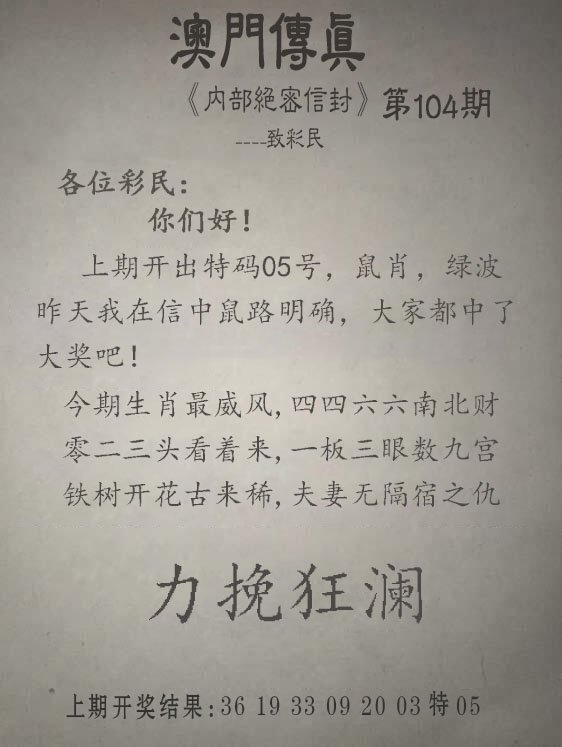 澳門傳眞
《内部絕密信封》第104期
----致彩民
各位彩民：
你们好！
上期开出特码05号，鼠肖，绿波
昨天我在信中鼠路明确，大家都中了
大奖吧！
今期生肖最威风,四四六六南北财
零二三头看着来,一板三眼数九宫
铁树开花古来稀,夫妻无隔宿之仇
力挽狂澜
上期开奖结果:36 19 33 09 20 03特05